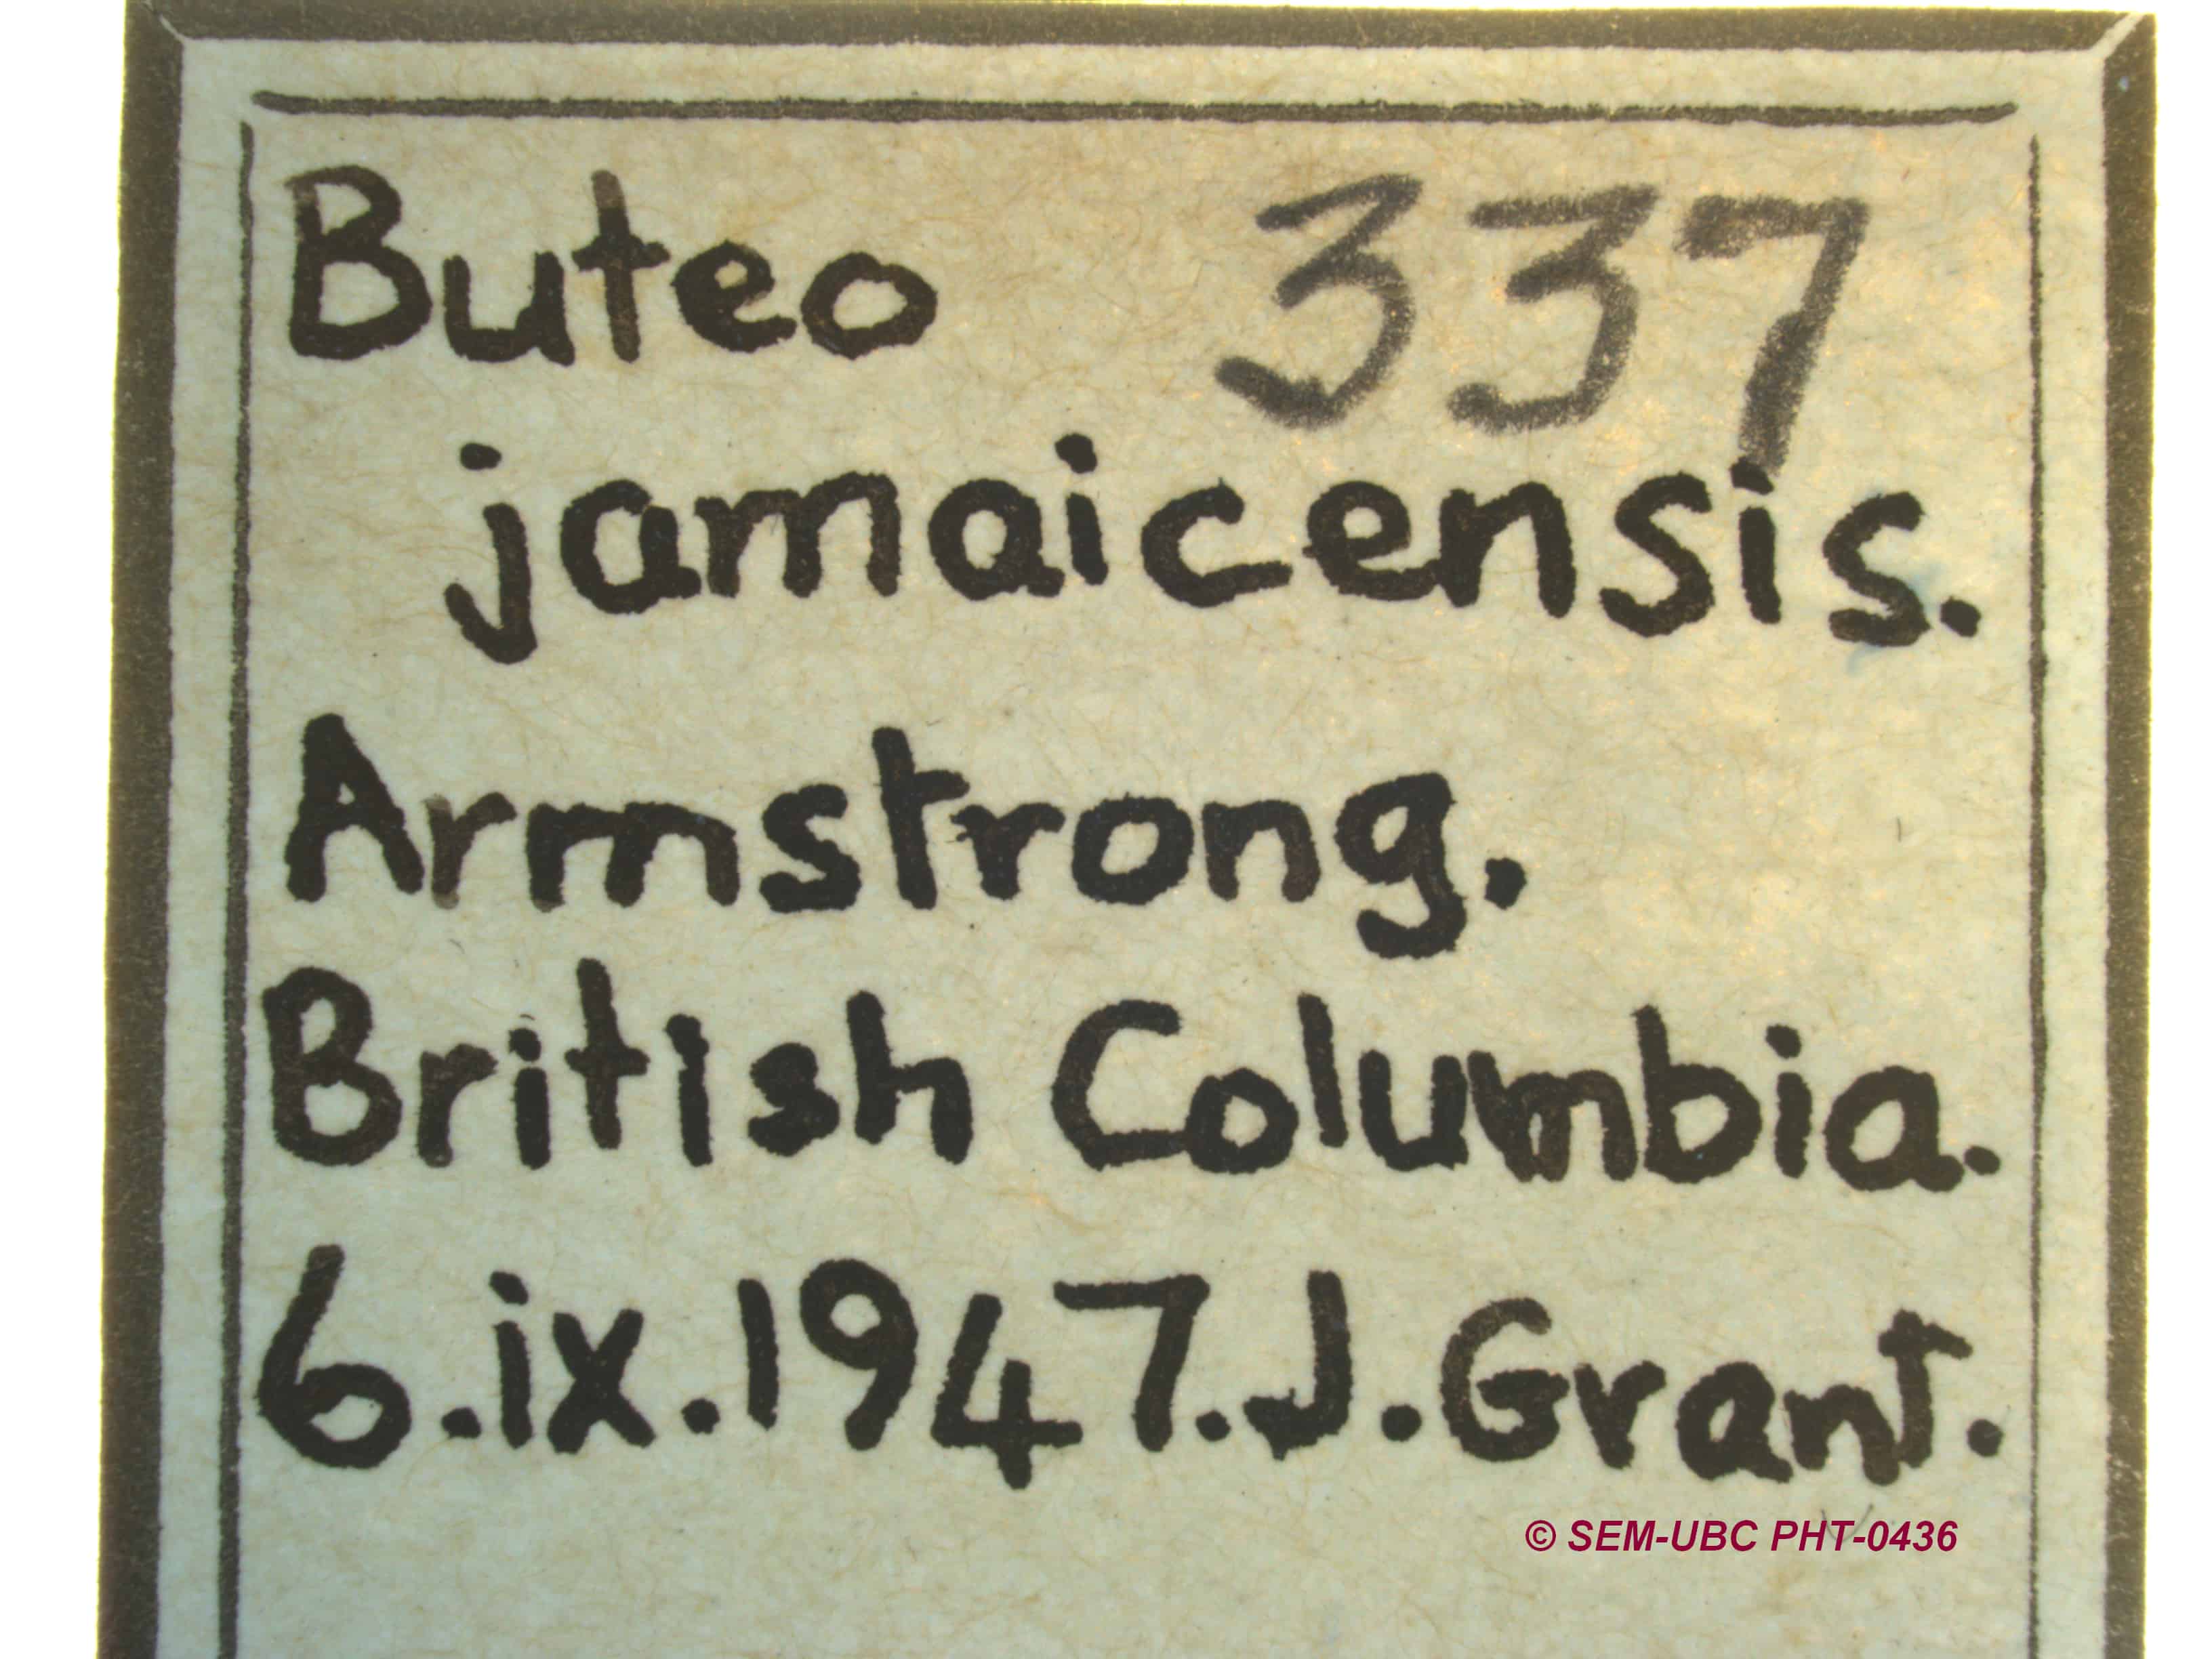 Buteo 337
jamaicensis.
Armstrong.
British Columbia.
6.ix.1947.J.Grant.
© SEM-UBC PHT-0436